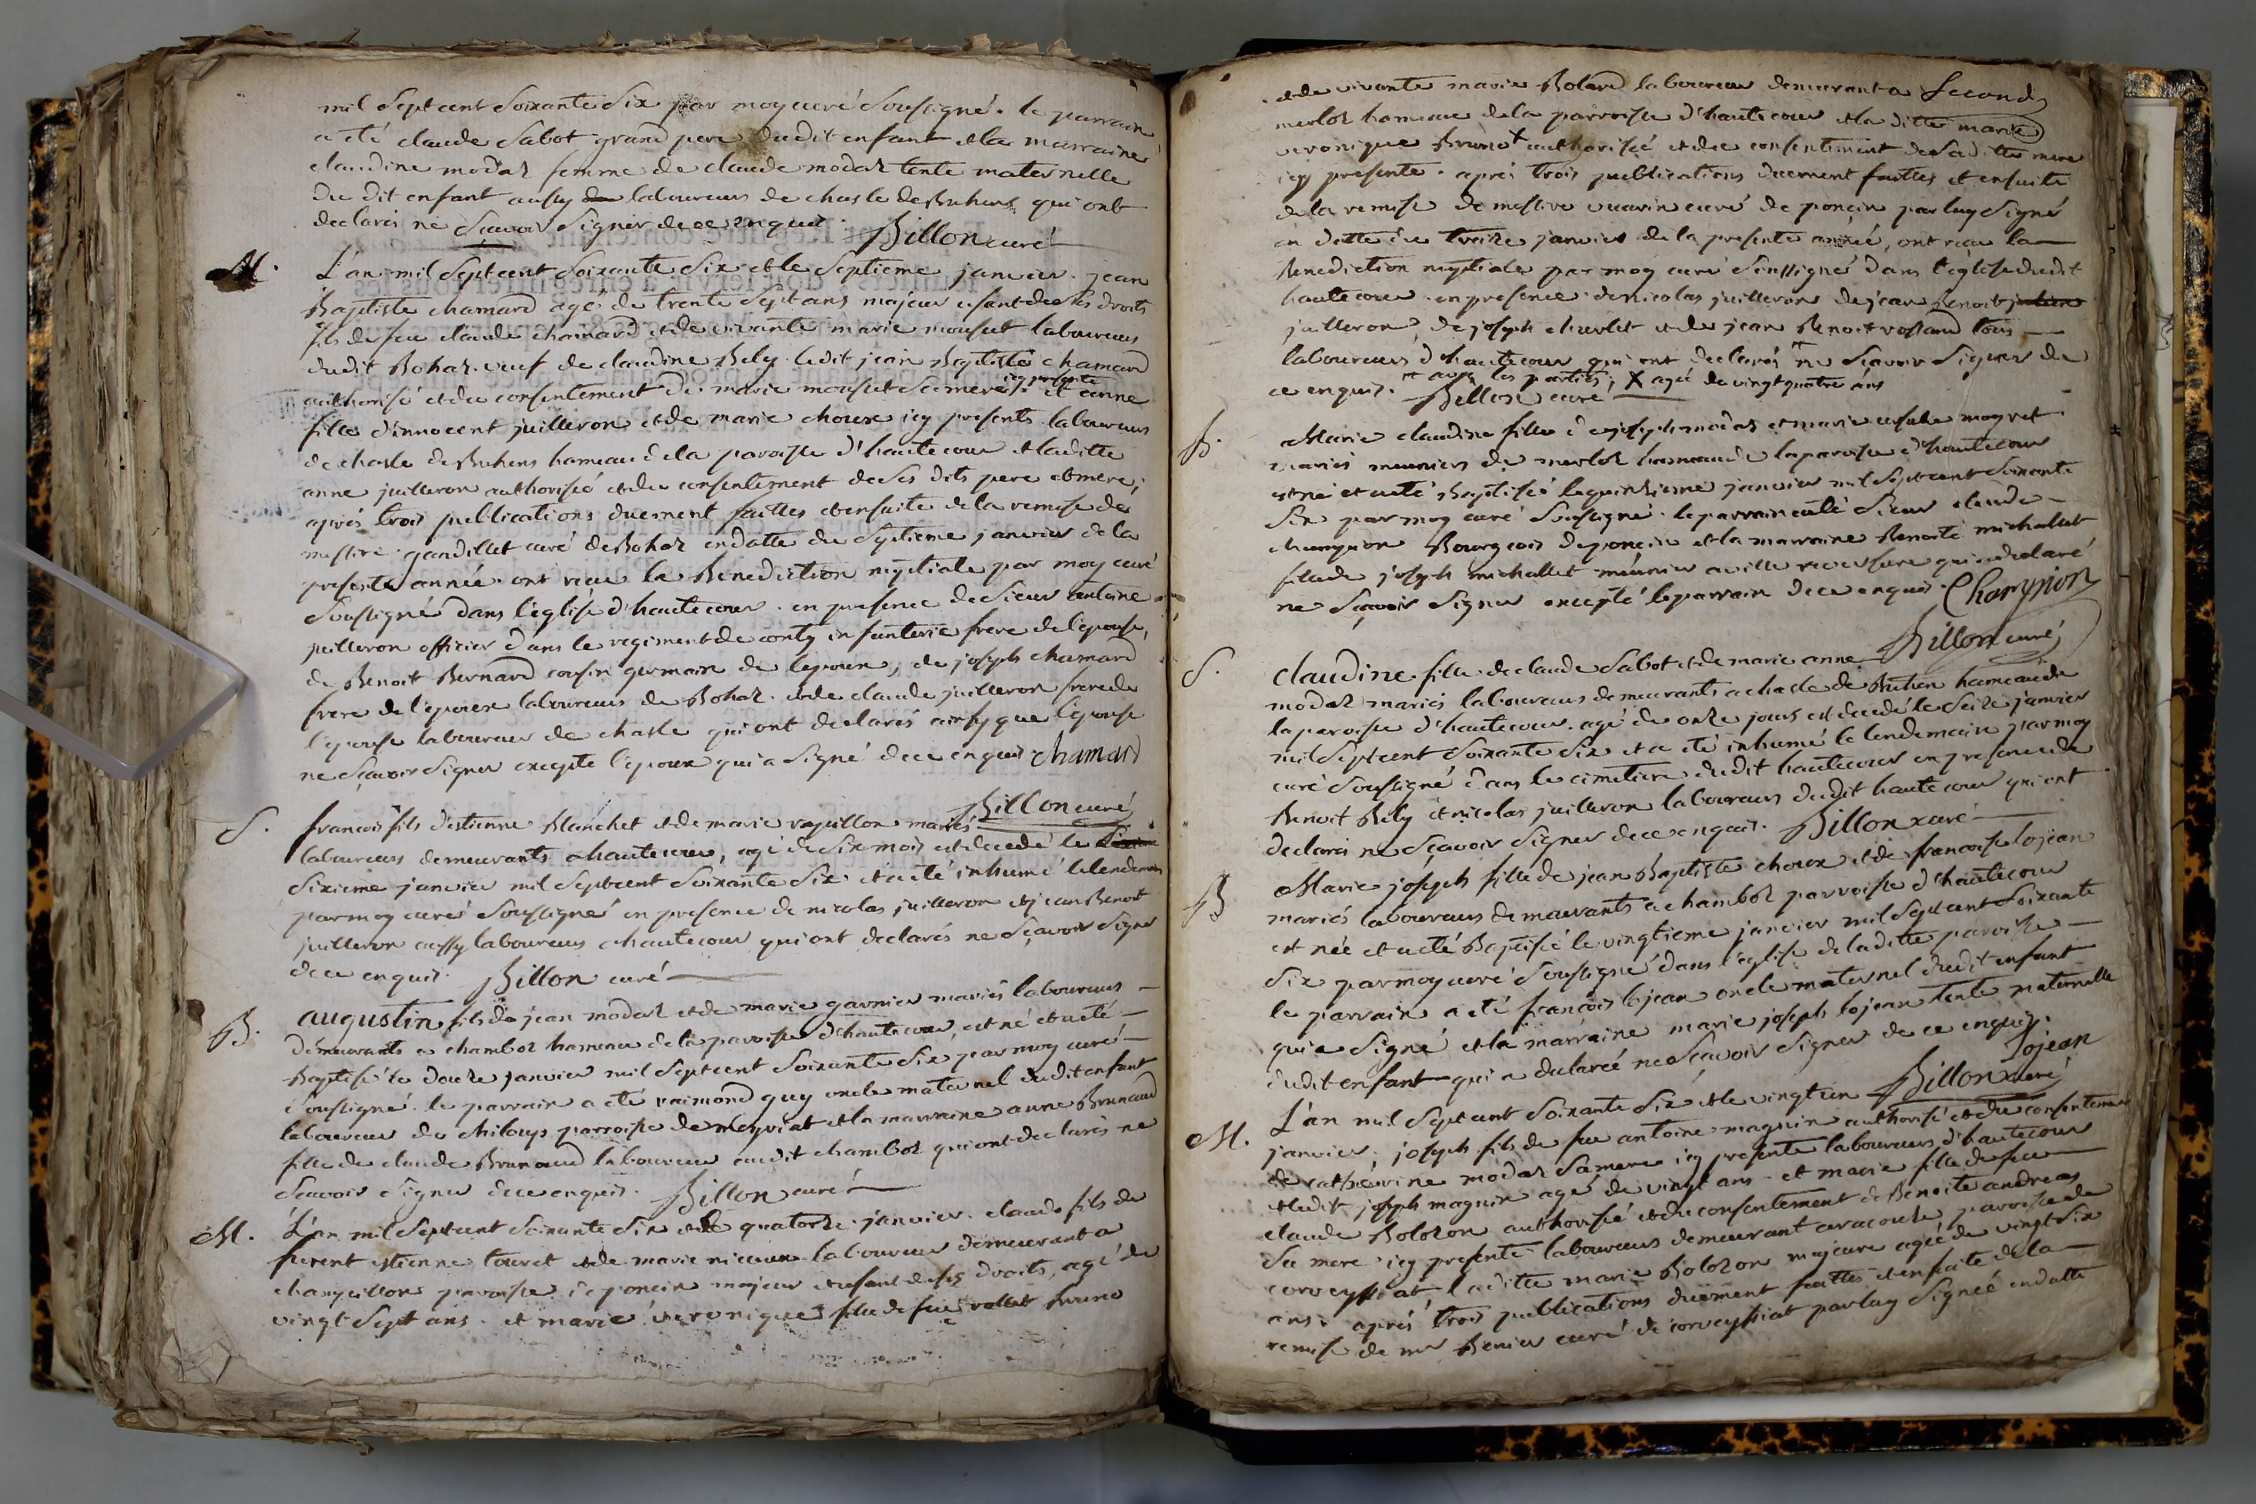 mil sept cent soixante six par moy curé soussigné. le parrain
a été claude Sabot grand pere dudit enfant et la marraine
claudine modas femme de claude modas tente maternelle
du dit enfant aussy laboureurs de chasle de Buhens qui ont
declarés ne sçavoir signer de ce enquis. Billon curé
M. L'an mil sept cent soixante six et le septieme janvier. jean
Baptiste chamard agé de trente sept ans majeur usant de ses droits
fils de feu claude chamard et de vivante marie mousut laboureurs
dudit Bohas. veuf de claudine Bely. ledit jean Baptiste chamard
authorisé et du consentement de marie mousut sa mere icy presente et anne
fille d'innocent juilleron et de marie choux icy presents laboureurs
de chasle de Buhens hameau de la paroisse d'hautecour et laditte
anne juilleron authorisée et du consentement de ses dits pere et mere,
aprés trois publications duement faittes et ensuite de la remise de
messire gandillet curé de Bohas en datte du septieme janvier de la
presente année. ont recu la Benediction nuptiale par moy curé
soussigné dans l'église d'hautecour. en presence de sieur antoine
juilleron officier dans le regiment de conty infanterie frere de l'epouse,
de Benoit Bernard cousin germain de l'epoux, de joseph chamard
frere de l'epoux laboureurs de Bohas. et de claude juilleron frere de
l'epouse laboureur de chasle qui ont declarés ainsy que l'epouse
ne sçavoir signer excepté l'epoux qui a signé de ce enquis chamard
Billon curé
S. francois fils d'estienne Blanchet et de marie rapillon mariés
laboureurs demeurants a hautecour, agé de six mois est decedé le
sixieme janvier mil sept cent soixante six et a été inhumé le lendemain
par moy curé soussigné en presence de nicolas juilleron et jean Benoit
juilleron aussy laboureurs a hautecour qui ont declarés ne sçavoir signer
de ce enquis. Billon curé
B. augustin fils de jean modas et de marie garnier mariés laboureurs
demeurants a chambos hameau de la paroisse d'hautecour, est né et a été
Baptisé le douze janvier mil sept cent soixante six par moy curé
soussigné. le parrain a été raimond guy oncle maternel dudit enfant
laboureur de chiloup parroisse de meyriat et la marraine anne Brunaud
fille de claude Brunaud laboureur audit chambos qui ont declarés ne
sçavoir signer de ce enquis. Billon curé
M. L'an mil sept cent soixante six et le quatorze janvier. claude fils de
furent estienne touret et de marie laboureur demeurant a
champeillon paroisse de poncin majeur et usant de ses droits, agé de
vingt sept ans. et marie veronique fille de feu rollet Bruno
et de vivante marie Roland laboureur demeurant a second
merlos hameau de la parroisse d'hautecour et la ditte marie
veronique Bruno x authorisée et du consentement de saditte mere
icy presente. aprés trois publications duement faittes et ensuite
de la remise de messire curé de poncin par luy signé
en datte du treize janvier de la presente année, ont recu la
Benediction nuptiale par moy curé soussigné dans l'église dudit
hautecour. en presence de nicolas juilleron de jean Benoit
juilleron, de joseph chevelet et de jean Benoit rolland tous
laboureurs d'hautecour qui ont declarés ne sçavoir signer de
ce enquis. avec les parties, x agée de vingt quatre ans
Billon curé
B. Marie claudine fille de joseph modas et marie ursule moyret
mariés meuniers de merlos hameau de la paroisse d'hautecour
est né et a été Baptisée le quinzieme janvier mil sept cent soixante
six par moy curé soussigné. le parrain a été sieur claude
champion Bourgeois de poncin et la marraine Benoite michallet
fille de joseph michallet meunier a ville reversure qui a declaré
ne sçavoir signer excepté le parrain de ce enquis. Champion
Billon curé
S. claudine fille de claude Sabot et de marie anne
modas mariés laboureurs demeurants a chasle de Buhen hameau de
la paroisse d'hautecour. agé de onze jours est decedé le seize janvier
mil sept cent soixante six et a été inhumé le lendemain par moy
curé soussigné dans le cimetiere dudit hautecour en presence de
Benoit Bely et nicolas juilleron laboureurs dudit hautecour qui ont
declaré ne sçavoir signer de ce enquis. Billon curé
B Marie joseph fille de jean Baptiste choux et de francoise lojean
mariés laboureurs demeurants a chambos parroisse d'hautecour
est née et a été Baptisé le vingtieme janvier mil sept cent soixante
six par moy curé soussigné dans l'eglise de laditte paroisse
le parrain a été francois lojean oncle maternel dudit enfant
qui a signé et la marraine marie joseph lojean tente maternelle
dudit enfant qui a declarée ne sçavoir signer de ce enquis.
Lojean
Billon curé
M. L'an mil sept cent soixante six et le vingt un
janvier, joseph fils de feu antoine magnin authorisé et du consentement
de catherine modas sa mere icy presente laboureurs d'hautecour
et ledit joseph magnin agé de vingt ans et marie fille de feu
claude Bolozon authorisée et du consentement de Benoite andreas
sa mere icy presente laboureurs demeurant a racouse paroisse de
corveyssiat, laditte marie Bolozon majeure agée de vingt six
ans. aprés trois publications duëment faittes et ensuite de la
remise de mr Benier curé de corveyssiat par luy signée en datte